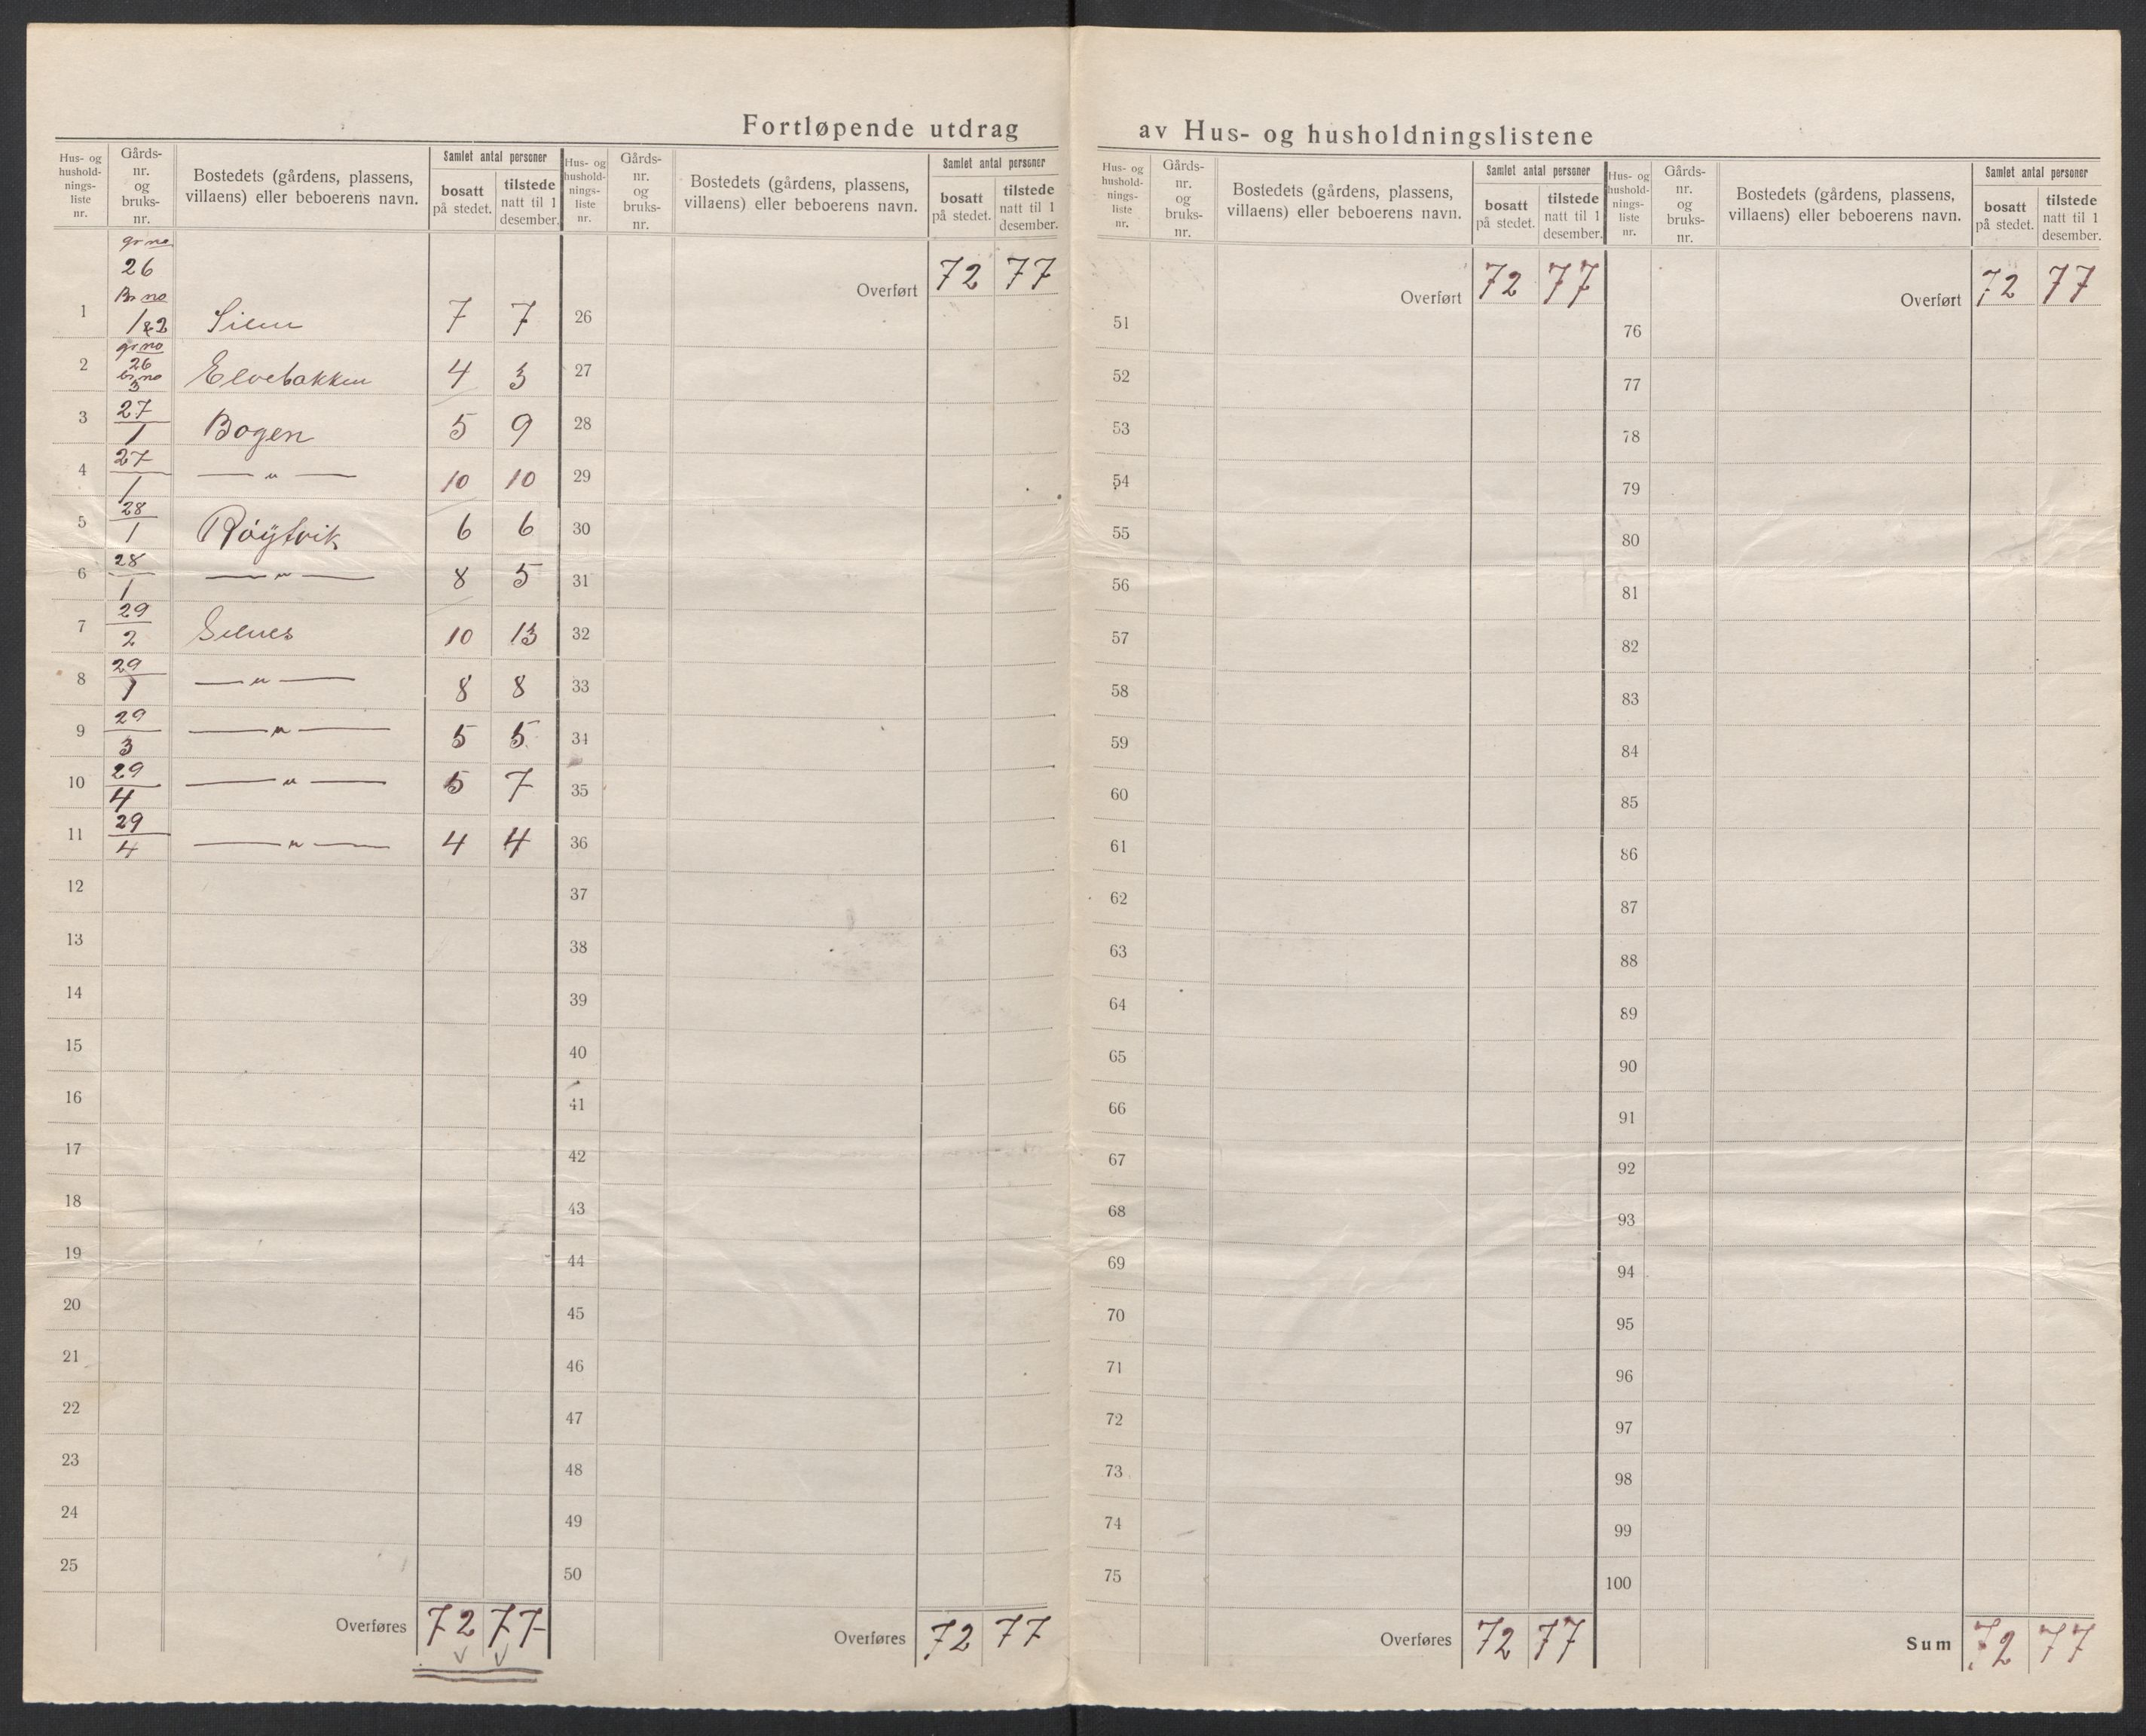 Fortløpende utdrag av Hus- og husholdningslistene
Hus- og husholdnings-liste nr. Gårds-nr. og bruks-nr. Bostedets (gårdens, plassens, villaens) eller beboerens navn. Samlet antal personer bosatt på stedet. tilstede natt til 1 desember.
Hus- og husholdnings-liste nr. Gårds-nr. og bruks-nr. Bostedets (gårdens, plassens, villaens) eller beboerens navn. Samlet antal personer bosatt på stedet. tilstede natt til 1 desember.
Hus- og husholdnings-liste nr. Gårds-nr. og bruks-nr. Bostedets (gårdens, plassens, villaens) eller beboerens navn. Samlet antal personer bosatt på stedet. tilstede natt til 1 desember.
Hus- og husholdnings-liste nr. Gårds-nr. og bruks-nr. Bostedets (gårdens, plassens, villaens) eller beboerens navn. Samlet antal personer bosatt på stedet. tilstede natt til 1 desember.
1 gr no 26 Br no 1&2 7 7
2 gr no 26 br no 3 Elvebakken 4 3
3 27/1 Bogen 5 9
4 27/1 — " — 10 10
5 28/1 Røytvik 6 6
6 28/1 — " — 8 5
7 29/2 Selnes 10 13
8 29/1 — " — 8 8
9 29/3 — " — 5 5
10 29/4 — " — 5 7
11 29/4 — " — 4 4
12
13
14
15
16
17
18
19
20
21
22
23
24
25
Overføres 72 77
Overført 72 77
26
27
28
29
30
31
32
33
34
35
36
37
38
39
40
41
42
43
44
45
46
47
48
49
50
Overføres 72 77
Overført 72 77
51
52
53
54
55
56
57
58
59
60
61
62
63
64
65
66
67
68
69
70
71
72
73
74
75
Overføres 72 77
Overført 72 77
76
77
78
79
80
81
82
83
84
85
86
87
88
89
90
91
92
93
94
95
96
97
98
99
100
Sum 72 77